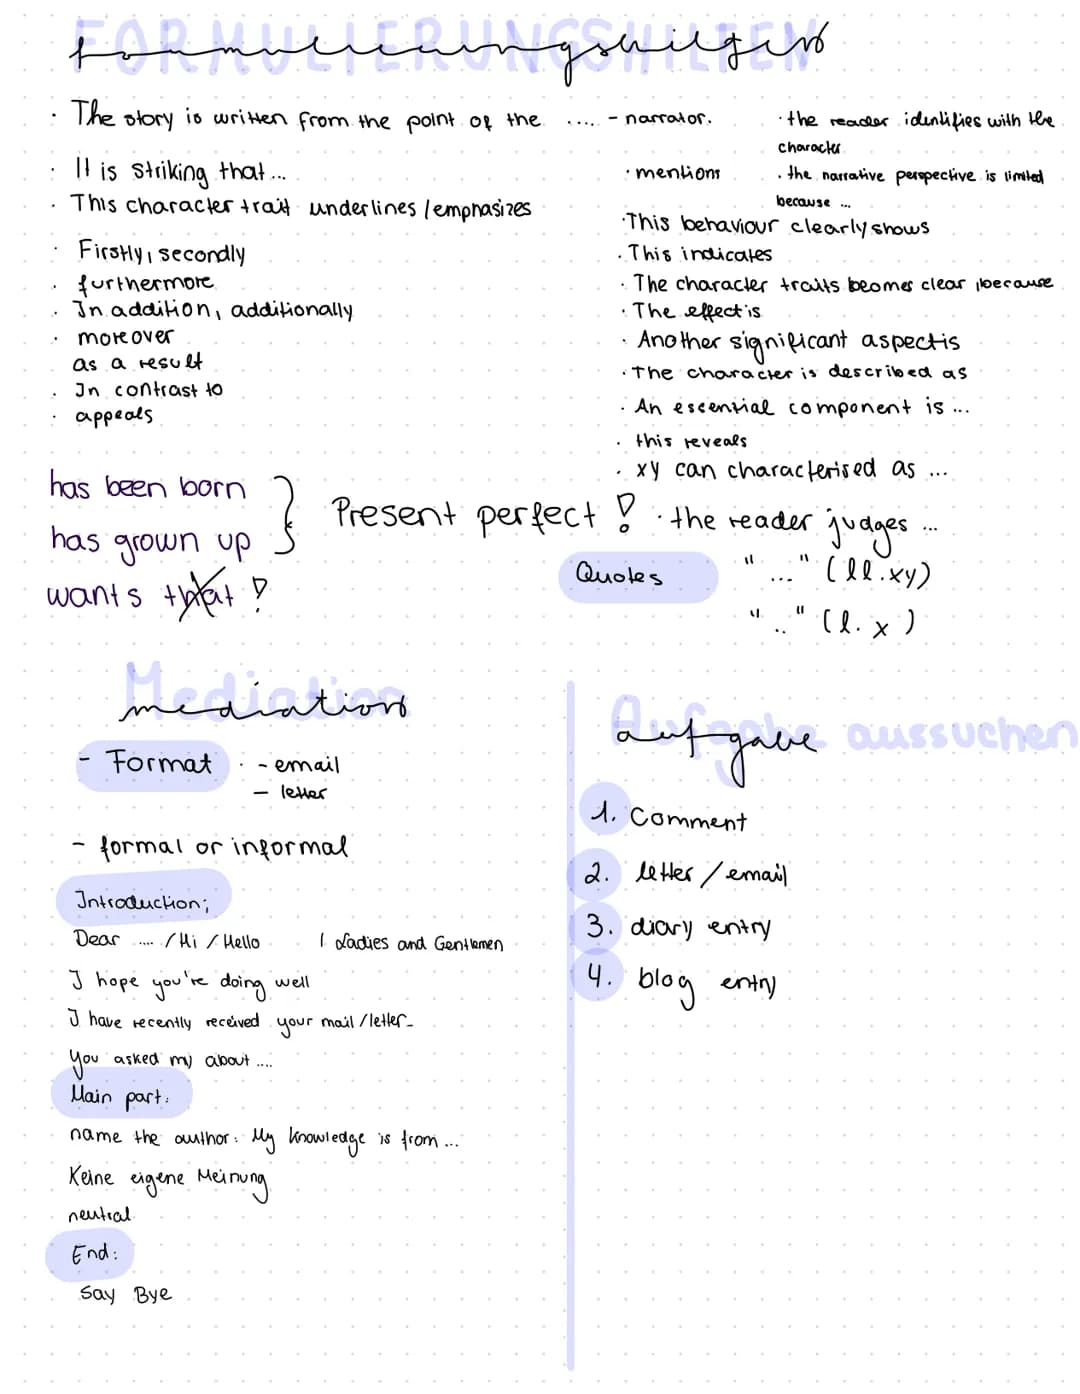 FORMULIERUNGSHILFEN
formulierungshilfen
· The story is written from the point of the .... - narrator.
· It is striking that...
· This character trait underlines / emphasizes
· Firstly, secondly
· furthermore
· In addition, additionally
· moreover
as a result
· In contrast to
· appeals
· the reader identifies with the
character
· mentions
· the narrative perspective is limited
because ...
· This behaviour clearly shows
· This indicates
· The character traits beomes clear, because
· The effect is
· Another significant aspect is
· The character is described as
· An essential component is ...
· this reveals
· xy can characterised as ...
· the reader judges ...
has been born
has grown up
Present perfect !
wants that !
Quotes
" ... " (ll.xy)
" .. " (l. x)
Mediation
mediation
- Format · - email
- letter
- formal or informal
Introduction;
Dear .... / Hi / Hello / Ladies and Gentlemen
I hope you're doing well
I have recently received your mail / letter_
You asked my about ....
Main part:
name the author: My knowledge is from ...
Keine eigene Meinung
neutral
End:
Say Bye
Aufgabe aussuchen
aufgabe
1. Comment
2. letter / email
3. diary entry
4. blog entry